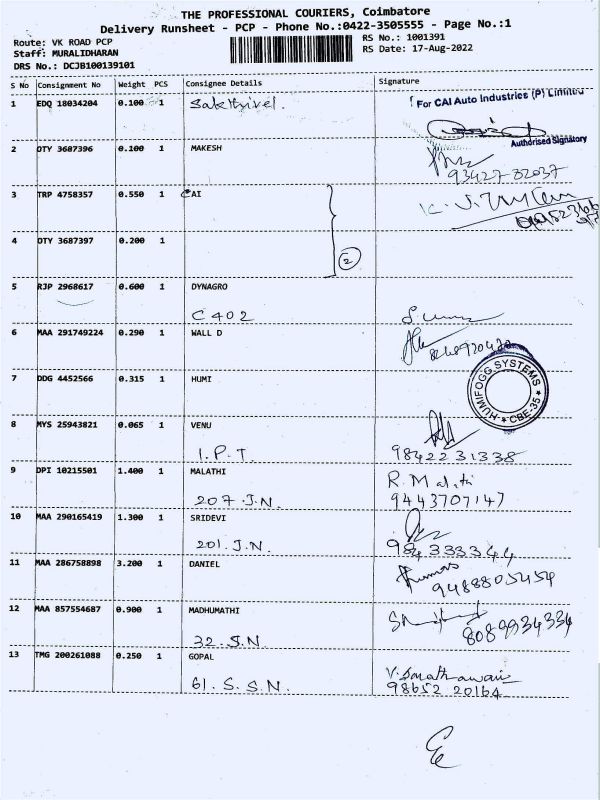 THE PROFESSIONAL COURIERS, Coimbatore
Delivery Runsheet - PCP - Phone No.:0422-3505555 - Page No.:1
Route: VK ROAD PCP RS No.: 1001391
Staff: MURALIDHARAN RS Date: 17-Aug-2022
DRS No.: DCJB100139101
S No Consignment No Weight PCS Consignee Details Signature
1 EDQ 18034204 0.100 1 Sakthivel. For CAI Auto Industries (P) Limited
Authorised Signatory
2 OTY 3687396 0.100 1 MAKESH
93427 82037
3 TRP 4758357 0.550 1 CAI
4 OTY 3687397 0.200 1
2
5 RJP 2968617 0.600 1 DYNAGRO
C 402
6 MAA 291749224 0.290 1 WALL D
7 DDG 4452566 0.315 1 HUMI HUMIFOGG SYSTEMS * CBE-35 *
8 MYS 25943821 0.065 1 VENU
I.P.T. 98422 31338
9 DPI 10215501 1.400 1 MALATHI R. Malathi
207 J.N. 9443707147
10 MAA 290165419 1.300 1 SRIDEVI
201. J.N. 984 3333 44
11 MAA 286758898 3.200 1 DANIEL
9488805454
12 MAA 857554687 0.900 1 MADHUMATHI
32. S.N 8089934334
13 TMG 200261088 0.250 1 GOPAL
61. S.S.N. 98652 20164